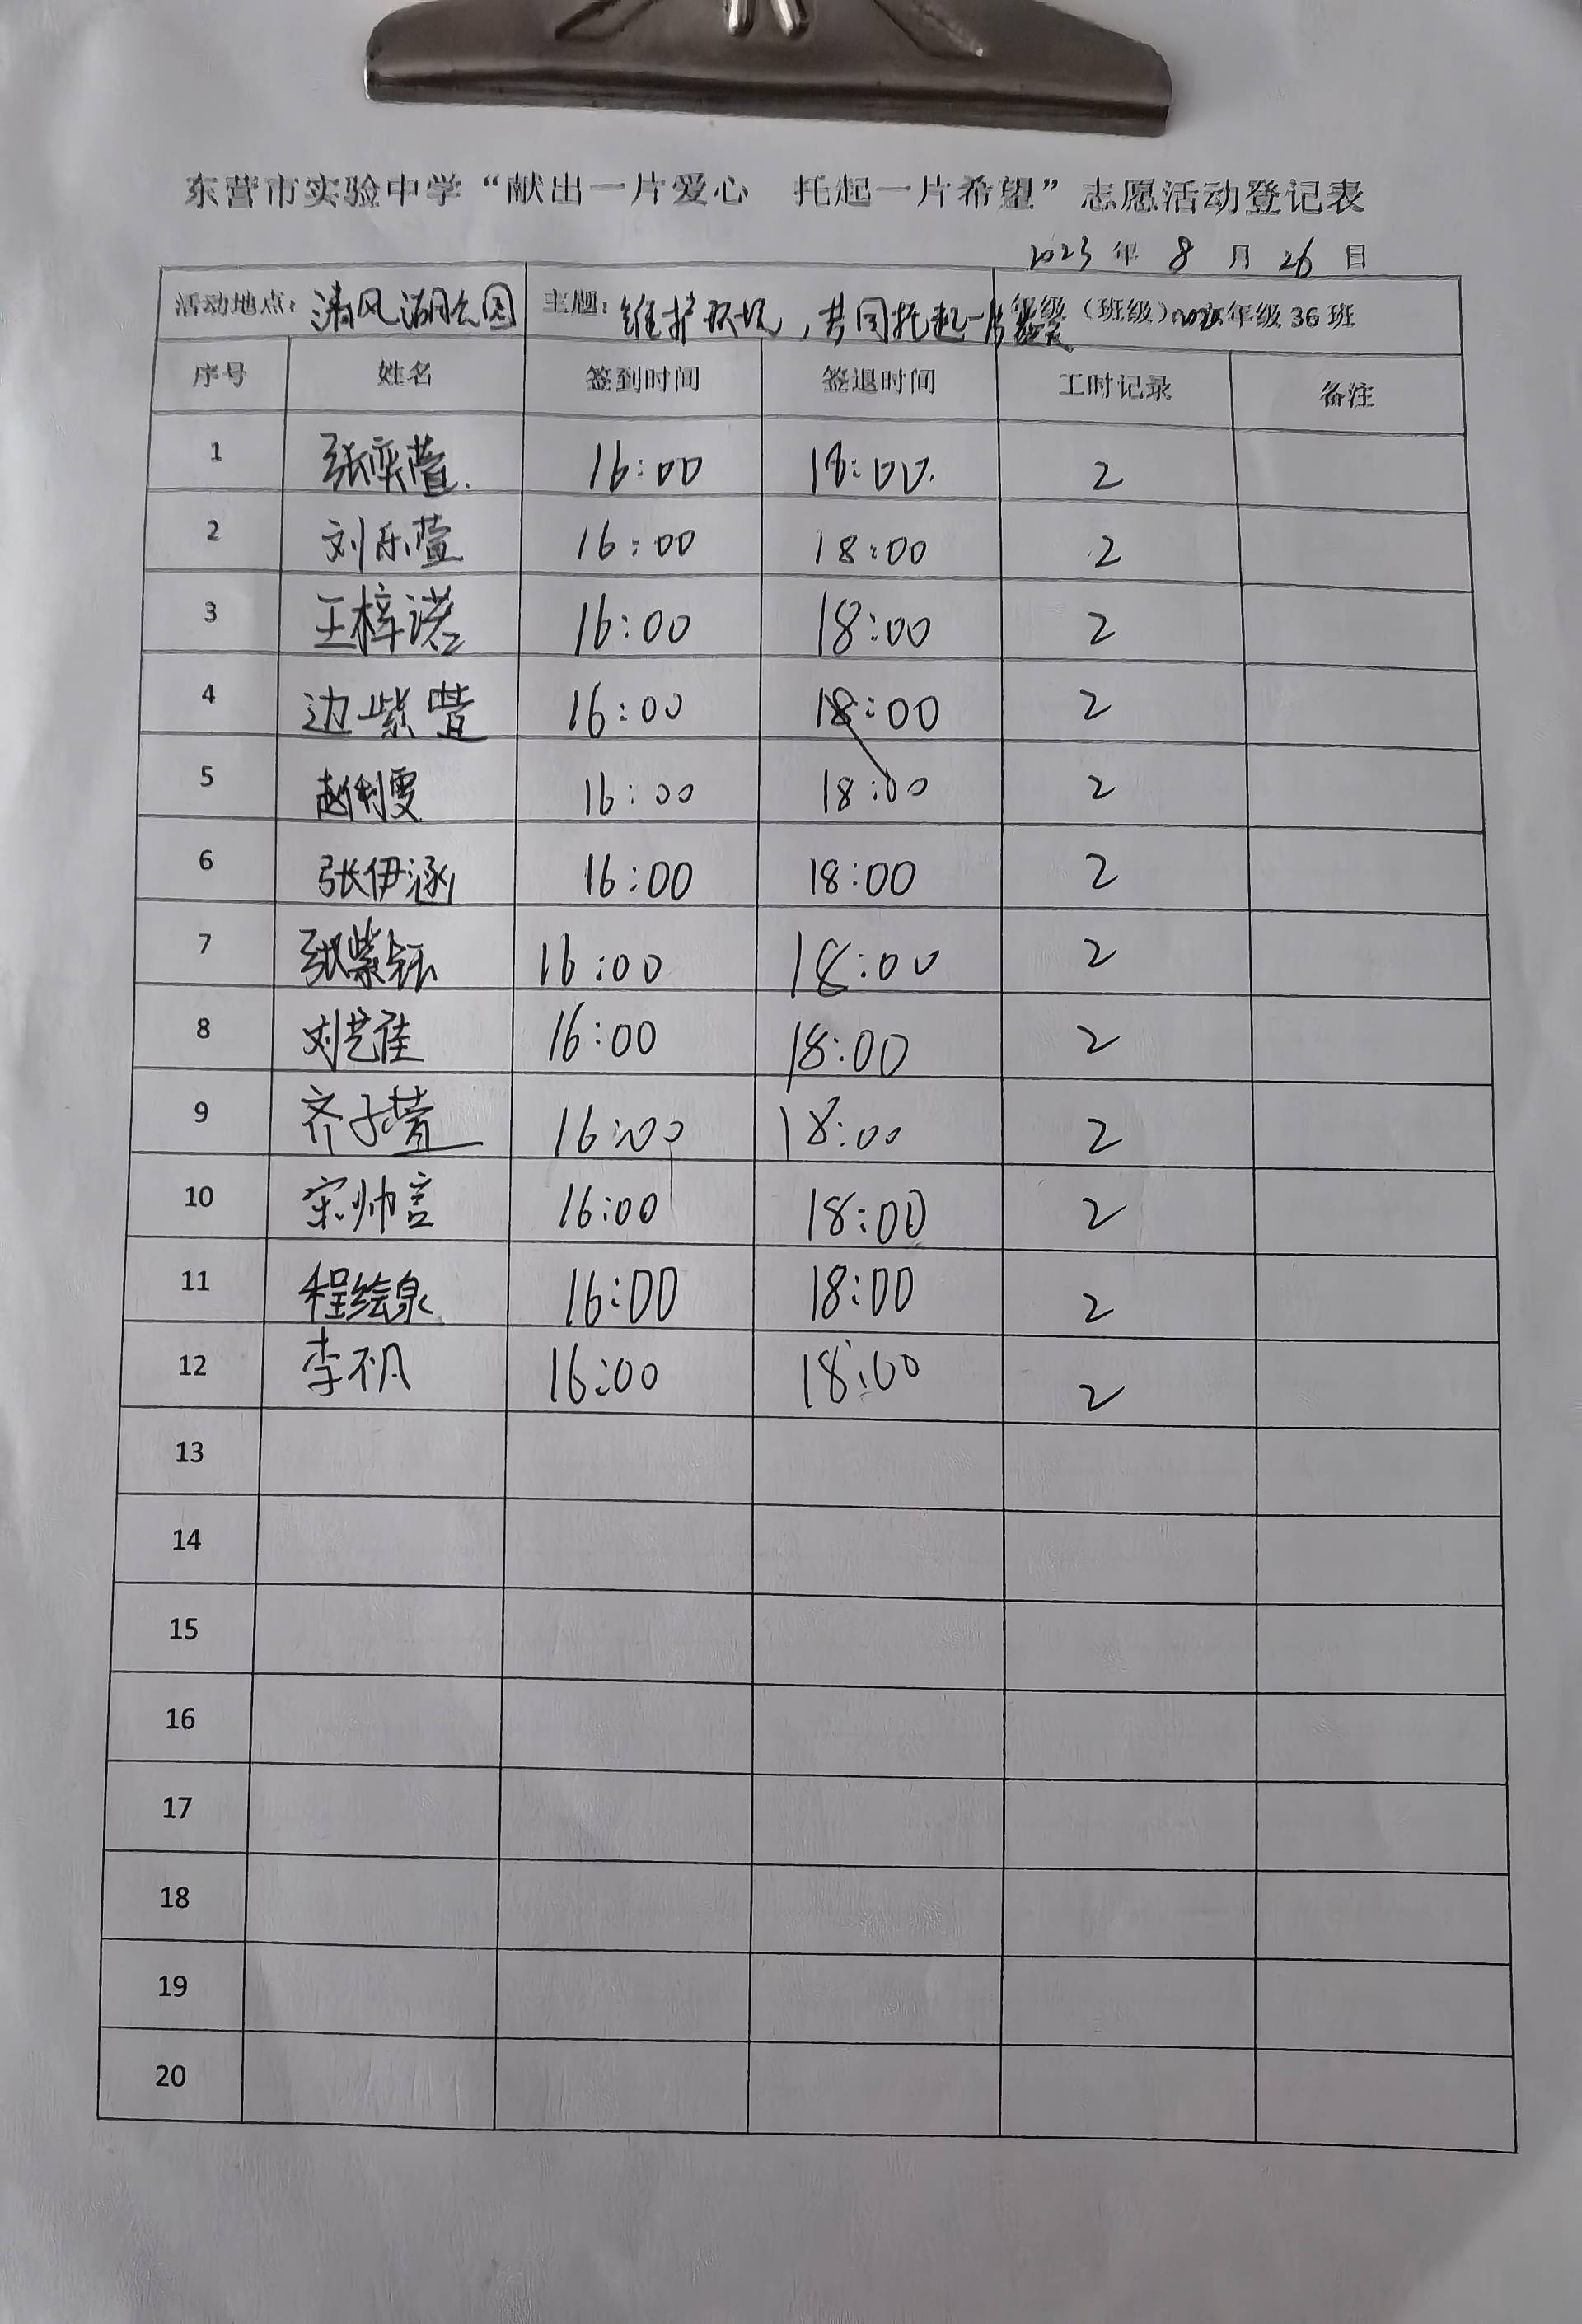 东营市实验中学“献出一片爱心 托起一片希望”志愿活动登记表
2023 年 8 月 26 日
活动地点：清风湖公园 主题：维护环境，共同托起一片蓝天 年级（班级） 年级 36 班
序号 姓名 签到时间 签退时间 工时记录 备注
1 张奕萱 16:00 18:00 2
2 刘乐萱 16:00 18:00 2
3 王梓诺 16:00 18:00 2
4 边紫萱 16:00 18:00 2
5 赵俐雯 16:00 18:00 2
6 张伊涵 16:00 18:00 2
7 张紫钰 16:00 18:00 2
8 刘艺佳 16:00 18:00 2
9 齐子萱 16:00 18:00 2
10 宋帅言 16:00 18:00 2
11 程绘泉 16:00 18:00 2
12 李不凡 16:00 18:00 2
13
14
15
16
17
18
19
20